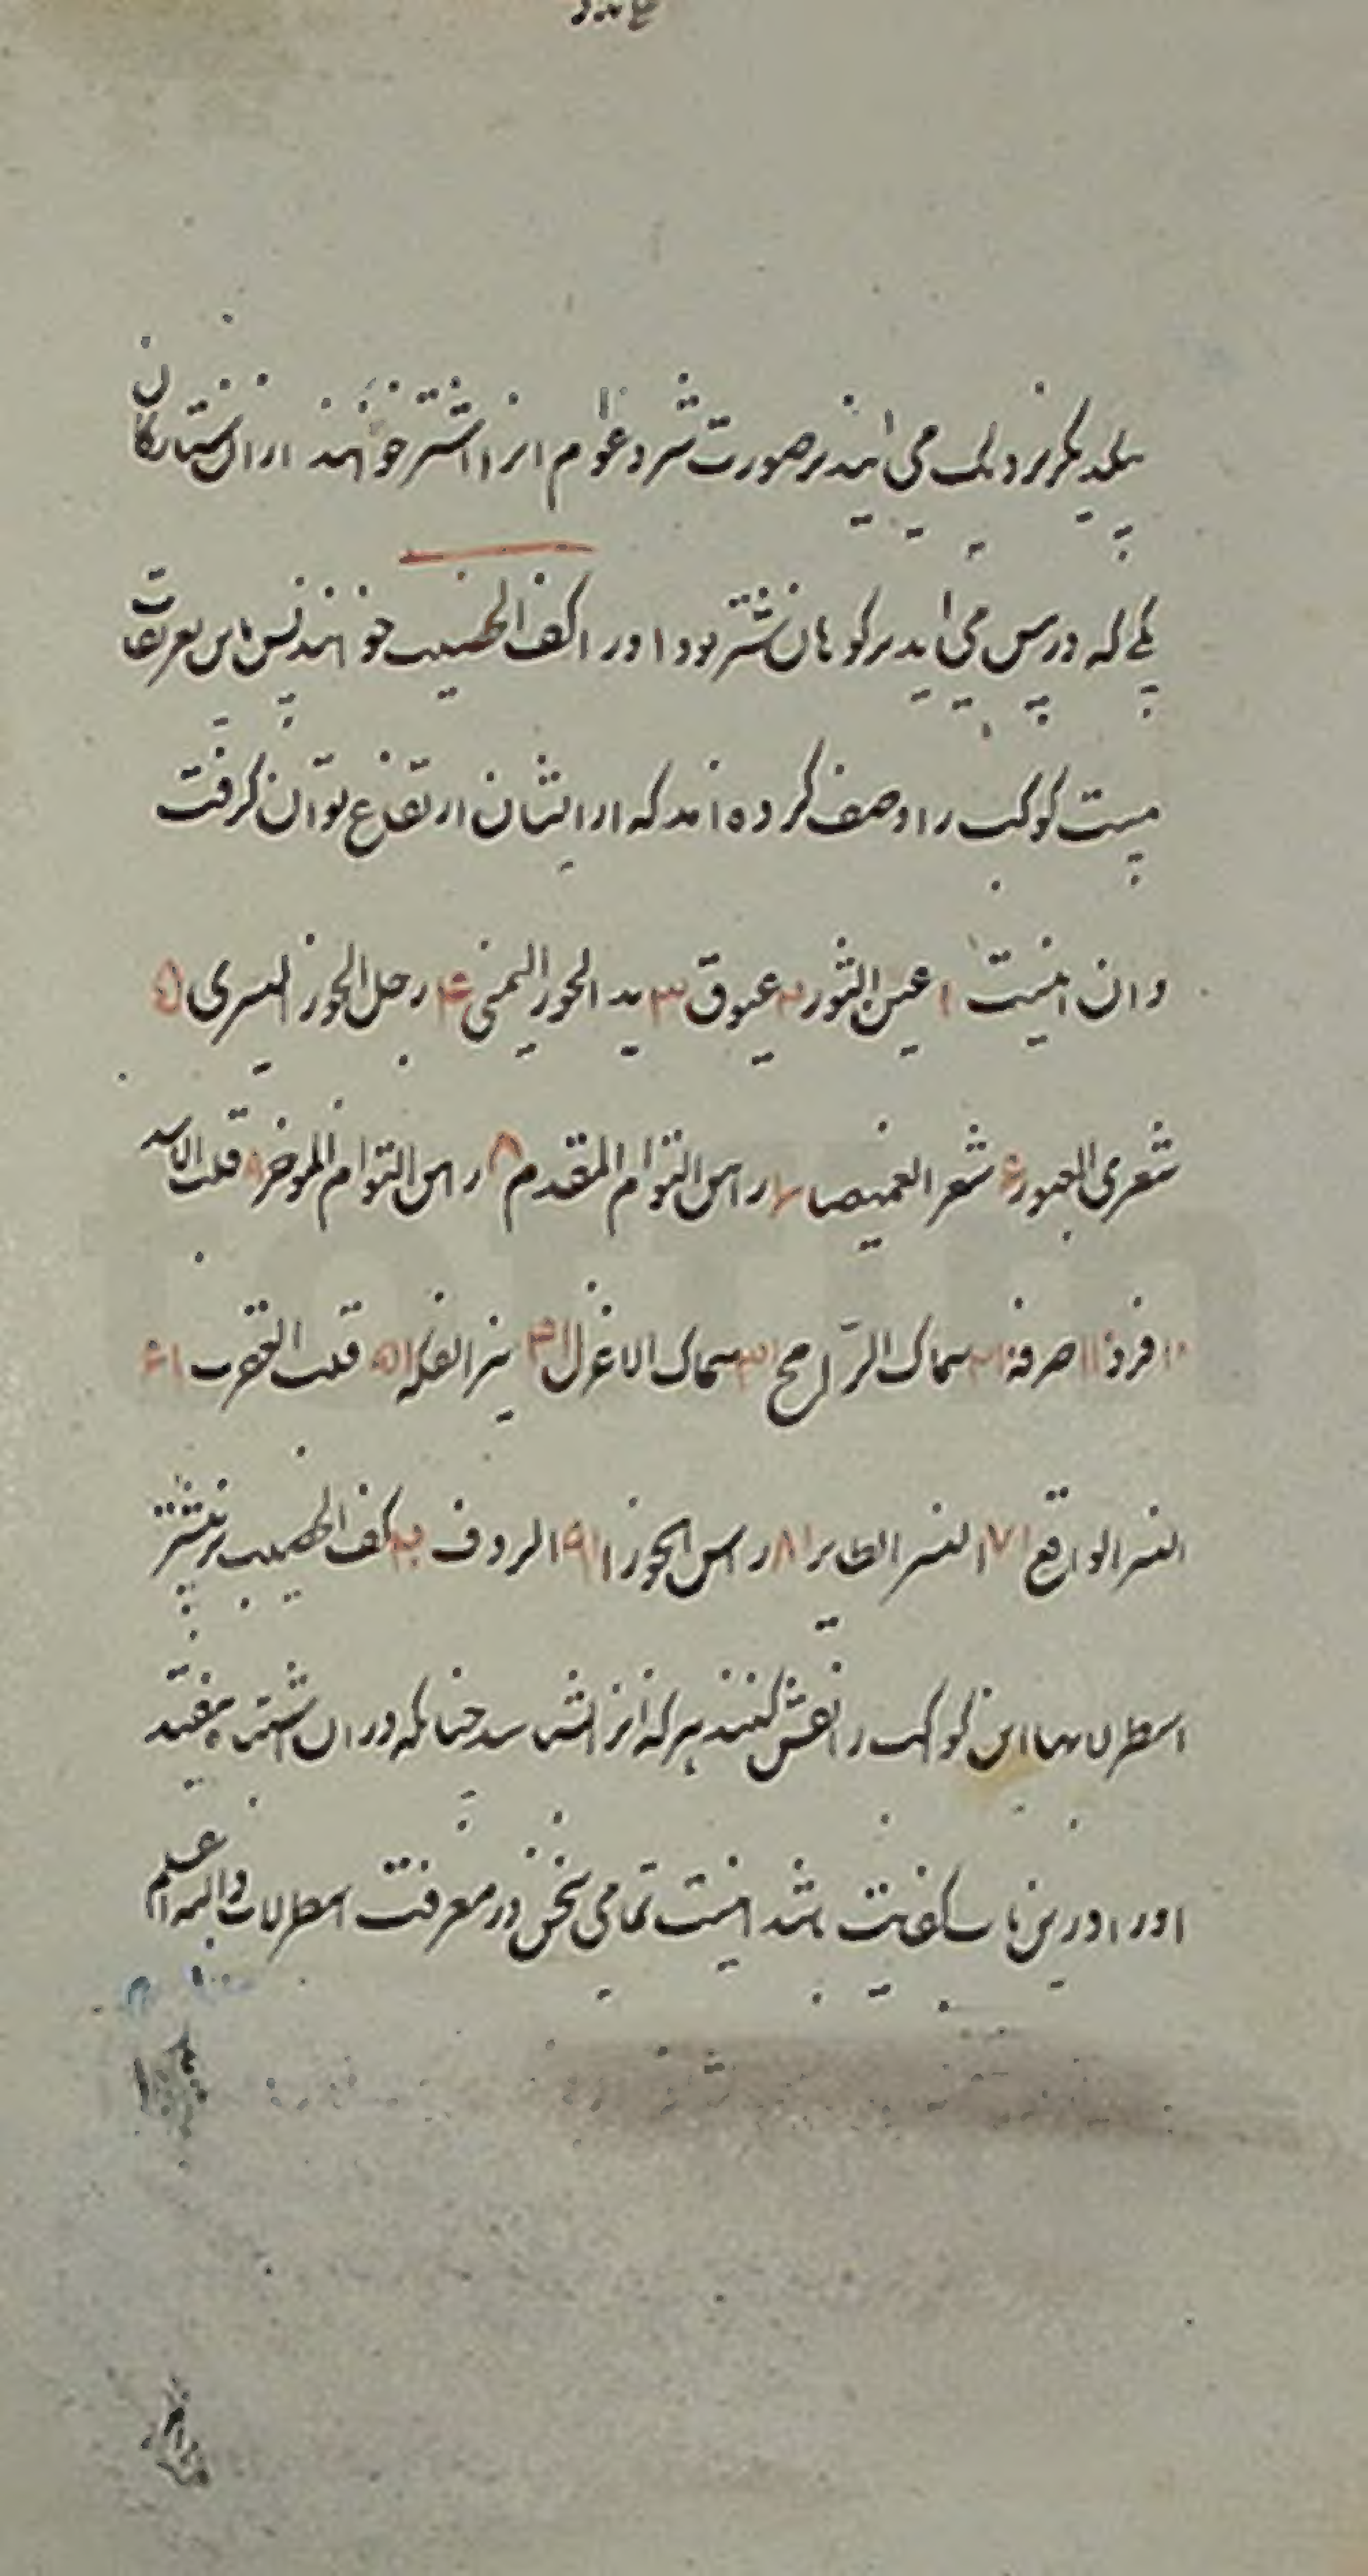 بیکدیکر نزدیک می ایند بر صورت شتر و عوام انرا اشتر خوانند از ان ستارکان
یکے که در پس می اید بر کوهان شتر بود او را کف الخضیب خوانند پس باین تعریفات
بیست کوکب را وصف کرده اند که از ایشان ارتفاع توان کرفت
و ان اینست ۱ عین الثور ۲ عیوق ۳ ید الجوزا الیمنی ۴ رجل الجوزا الیسری ۵
شعری العبور ۶ شعر الغمیصا ۷ راس التوام المقدم ۸ راس التوام الموخر ۹ قلب الاسد
۱۰ فرد ۱۱ صرفه ۱۲ سماک الرامح ۱۳ سماک الاعزل ۱۴ نیر الفکه ۱۵ قلب العقرب ۱۶
النسر الواقع ۱۷ النسر الطایر ۱۸ راس الجوزا ۱۹ الردف ۲۰ کف الخضیب بر بیشتر
اسطرلابها این کواکب را نقش کنند هر که انرا بشناسد چنانکه در ان شبهت نیفتد
او را درین باب کفایت باشد اینست تمامی سخن در معرفت اسطرلاب والله اعلم